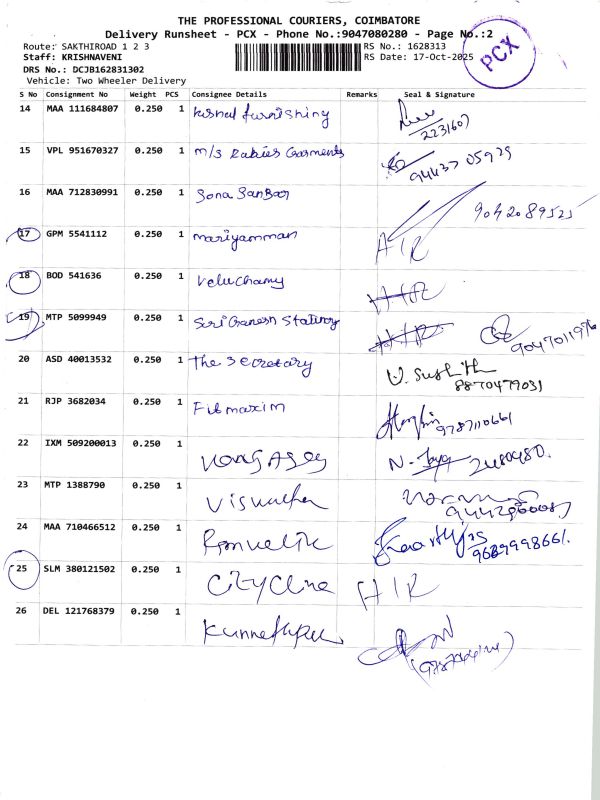 THE PROFESSIONAL COURIERS, COIMBATORE
Delivery Runsheet - PCX - Phone No.:9047080280 - Page No.:2
Route: SAKTHIROAD 1 2 3 RS No.: 1628313
Staff: KRISHNAVENI RS Date: 17-Oct-2025
PCX
DRS No.: DCJB162831302
Vehicle: Two Wheeler Delivery
S No Consignment No Weight PCS Consignee Details Remarks Seal & Signature
14 MAA 111684807 0.250 1 furnishing
2231607
15 VPL 951670327 0.250 1 M/S Rabies Garments
94437 05929
16 MAA 712830991 0.250 1 Sona
9042089525
17 GPM 5541112 0.250 1 mariyamman A/R
18 BOD 541636 0.250 1 Veluchamy
19 MTP 5099949 0.250 1 Sri Ganesh
9047011976
20 ASD 40013532 0.250 1 The Secretary
8870479031
21 RJP 3682034 0.250 1 Filmaxim
9787110661
22 IXM 509200013 0.250 1
2480480.
23 MTP 1388790 0.250 1
24 MAA 710466512 0.250 1
9689998661.
25 SLM 380121502 0.250 1 City Cline A/R
26 DEL 121768379 0.250 1